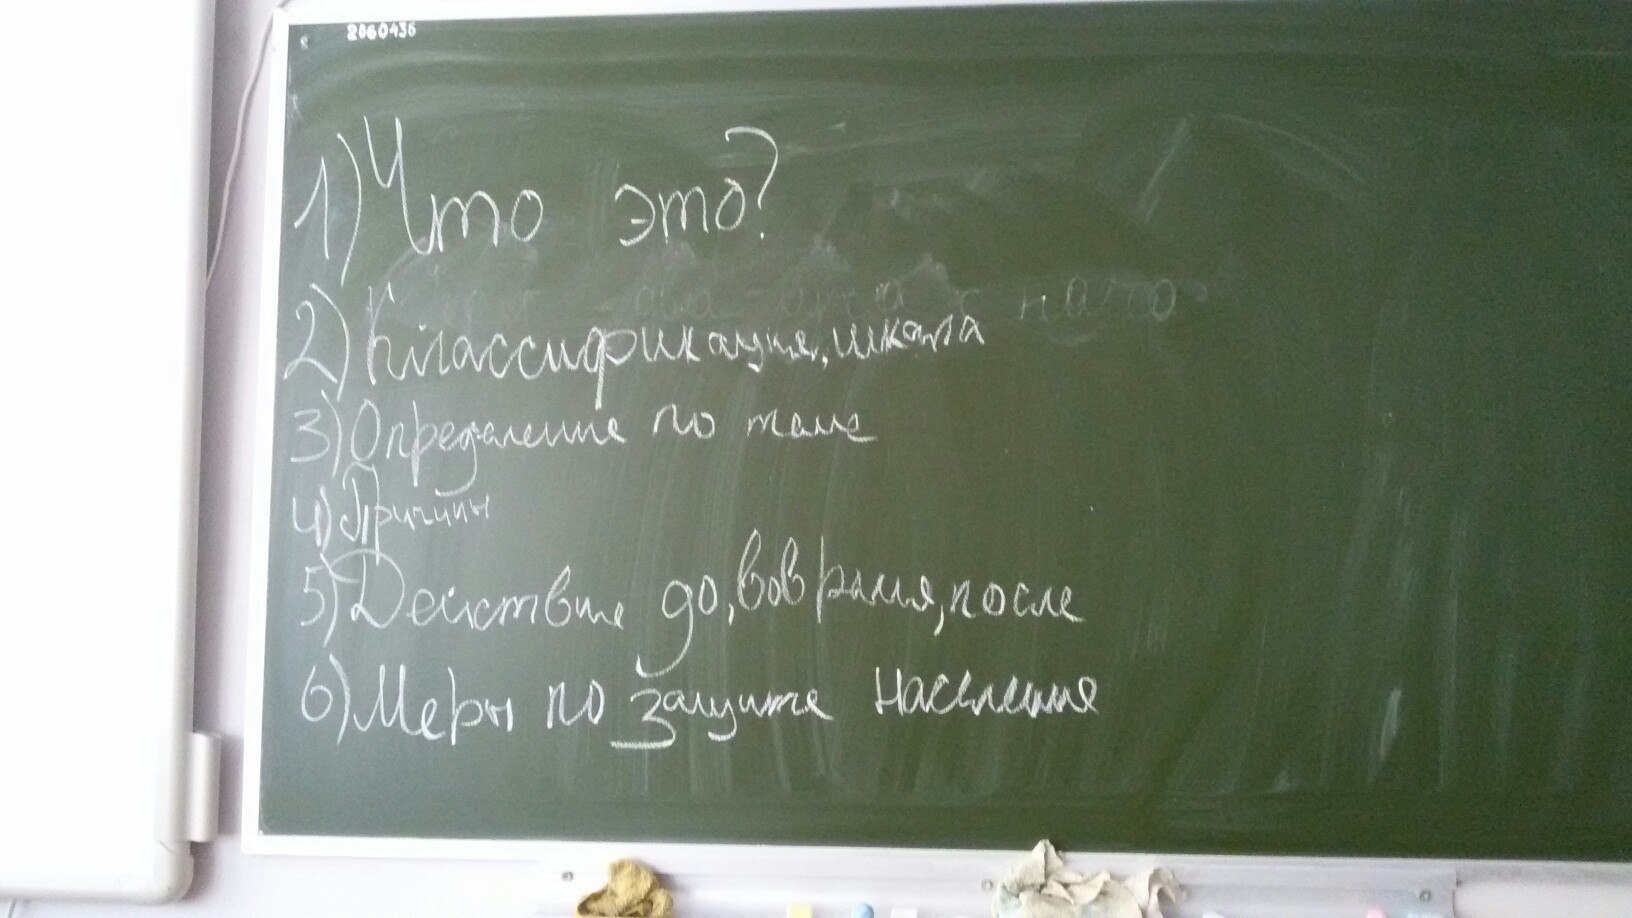 2060436
1) Что это?
2) Классификация, шкала
3) Определение по теме
4) Причины
5) Действие до, вовремя, после
6) Меры по защите населения